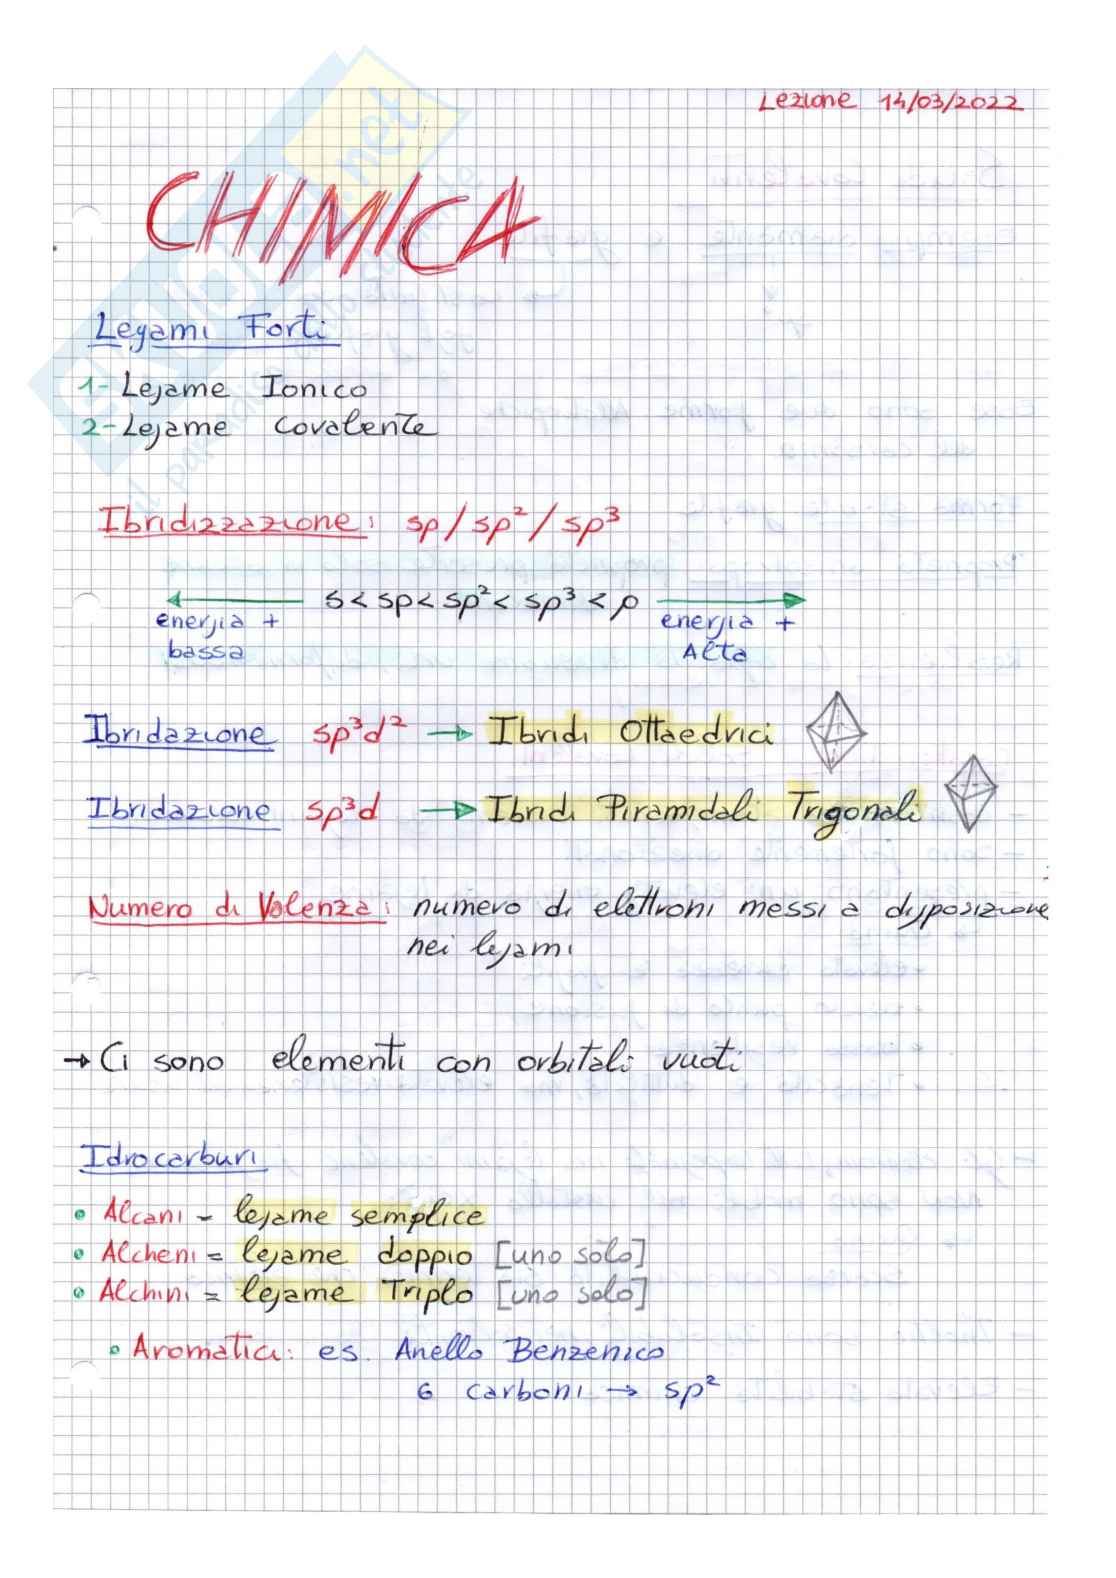 Lezione 14/03/2022
CHIMICA
Legami Forti
1- Legame Ionico
2- Legame Covalente
Ibridizzazione: sp/sp²/sp³
s < sp < sp² < sp³ < p
energia + bassa
energia + Alta
Ibridazione sp³d² → Ibridi Ottaedrici
Ibridazione sp³d → Ibridi Piramidali Trigonali
Numero di Valenza: numero di elettroni messi a disposizione
nei legami
→ Ci sono elementi con orbitali vuoti
Idrocarburi
• Alcani - legame semplice
• Alcheni = legame doppio [uno solo]
• Alchini = legame Triplo [uno solo]
• Aromatici: es. Anello Benzenico
6 carboni → sp²